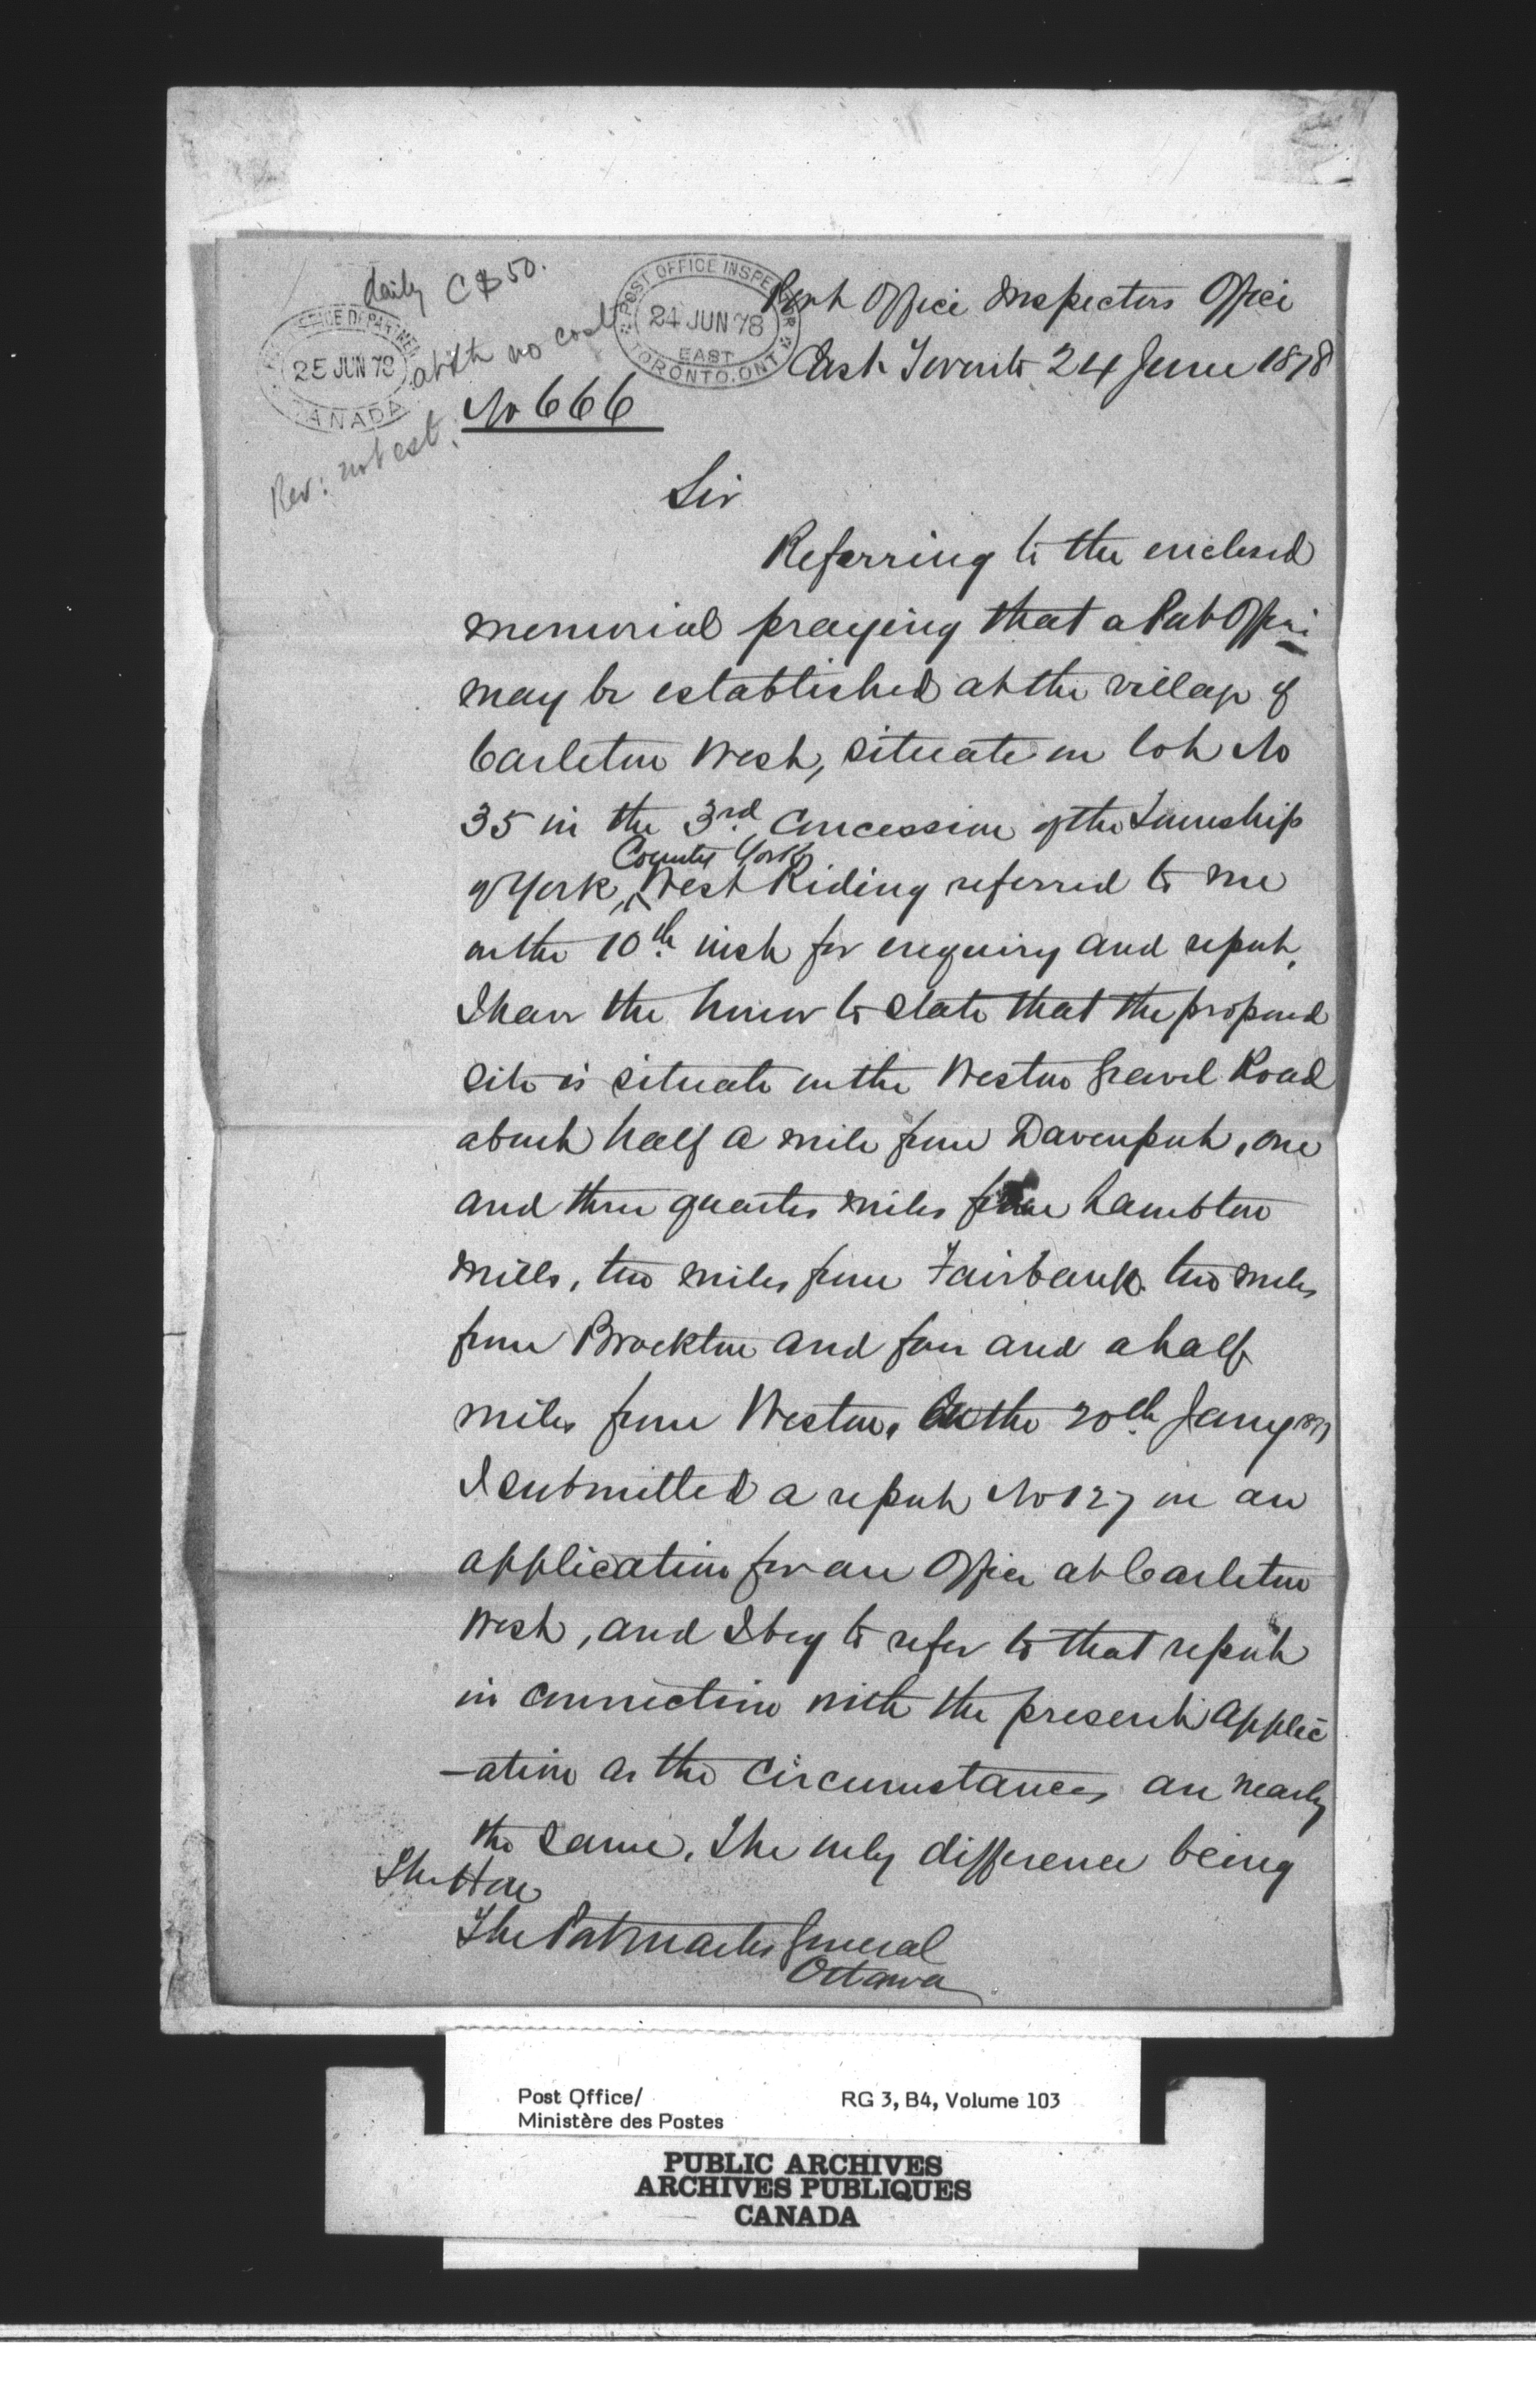 daily C $50.
atith no cost
POST OFFICE INSPECTOR
24 JUN 78
EAST
TORONTO. ONT
Post Office Inspectors Office
East Toronto 24 June 1878
OFFICE DEPARTMEN
25 JUN 78
CANADA
No 666
Rev: not est.
Sir
Referring to the enclosed
memorial praying that a Post Office
may be established at the village of
Carleton West, situate on lot No
35 in the 3rd Concession of the Township
County York
of York, West Riding referred to me
on the 10th inst for enquiry and report,
I have the honor to state that the proposed
site is situate on the Weston Gravel Road
about half a mile from Davenport, one
and three quarter miles from Lambton
Mills, two miles from Fairbank two miles
from Brockton and four and a half
miles from Weston. On the 20th Jany 1877
I submitted a report No 127 on an
application for an Office at Carleton
West, and I beg to refer to that report
in connection with the present applic
-ation as the circumstances are nearly
the same. The only difference being
The Hon
The Postmaster General
Ottawa
Post Office/
Ministère des Postes
RG 3, B4, Volume 103
PUBLIC ARCHIVES
ARCHIVES PUBLIQUES
CANADA